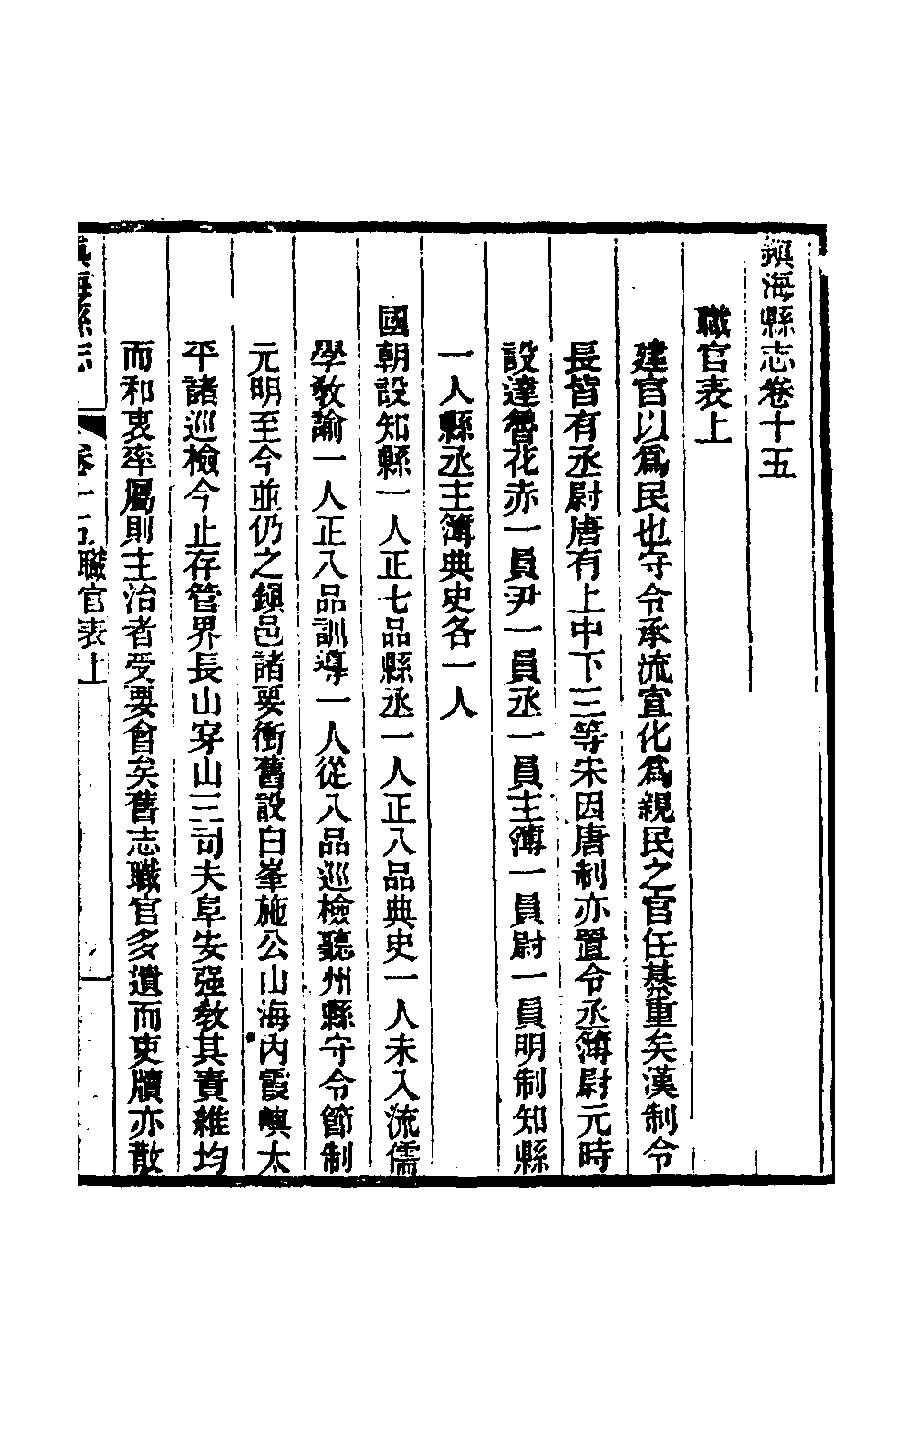 鎮海縣志卷十五
職官表上
建官以爲民也守令承流宣化爲親民之官任綦重矣漢制令
長皆有丞尉唐有上中下三等宋因唐制亦置令丞簿尉元時
設達魯花赤一員尹一員丞一員主簿一員尉一員明制知縣
一人縣丞主簿典史各一人
國朝設知縣一人正七品縣丞一人正八品典史一人未入流儒
學教諭一人正八品訓導一人從八品巡檢聽州縣守令節制
元明至今並仍之鎭邑諸要衝舊設白峯施公山海內霞嶼太
平諸巡檢今止存管界長山穿山三司夫阜安强教其責維均
而和衷率屬則主治者受要會矣舊志職官多遺而吏牘亦散
鎮海縣志 卷十五 職官表上